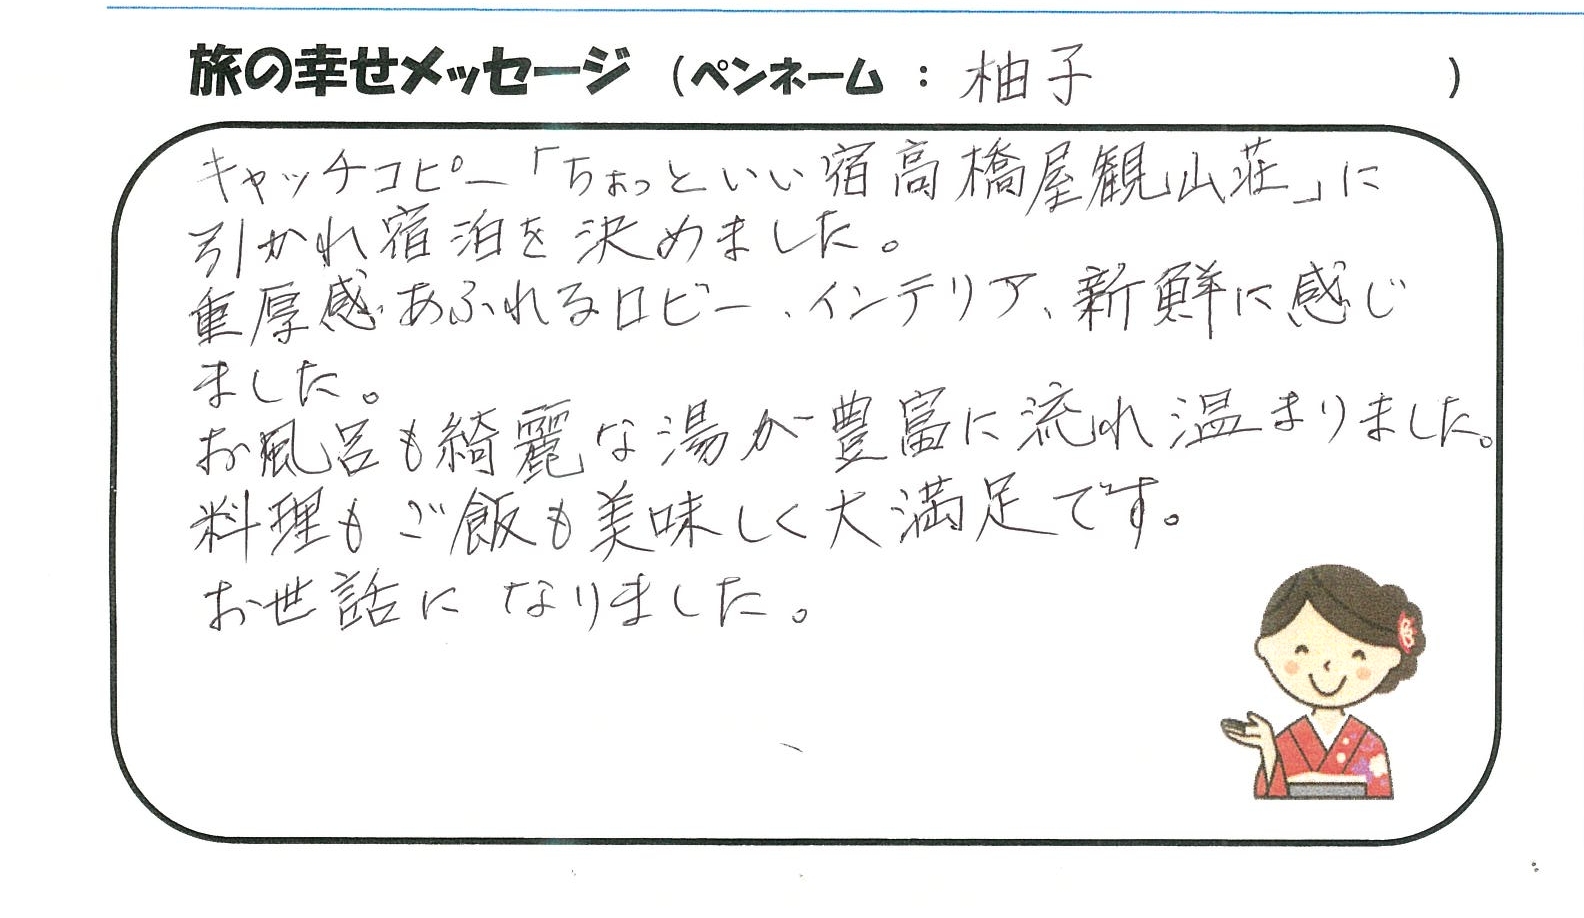 旅の幸せメッセージ (ペンネーム : 柚子 )
キャッチコピー「ちょっといい宿高橋屋観山荘」に
引かれ宿泊を決めました。
重厚感あふれるロビー、インテリア、新鮮に感じ
ました。
お風呂も綺麗な湯が豊富に流れ温まりました。
料理もご飯も美味しく大満足です。
お世話になりました。